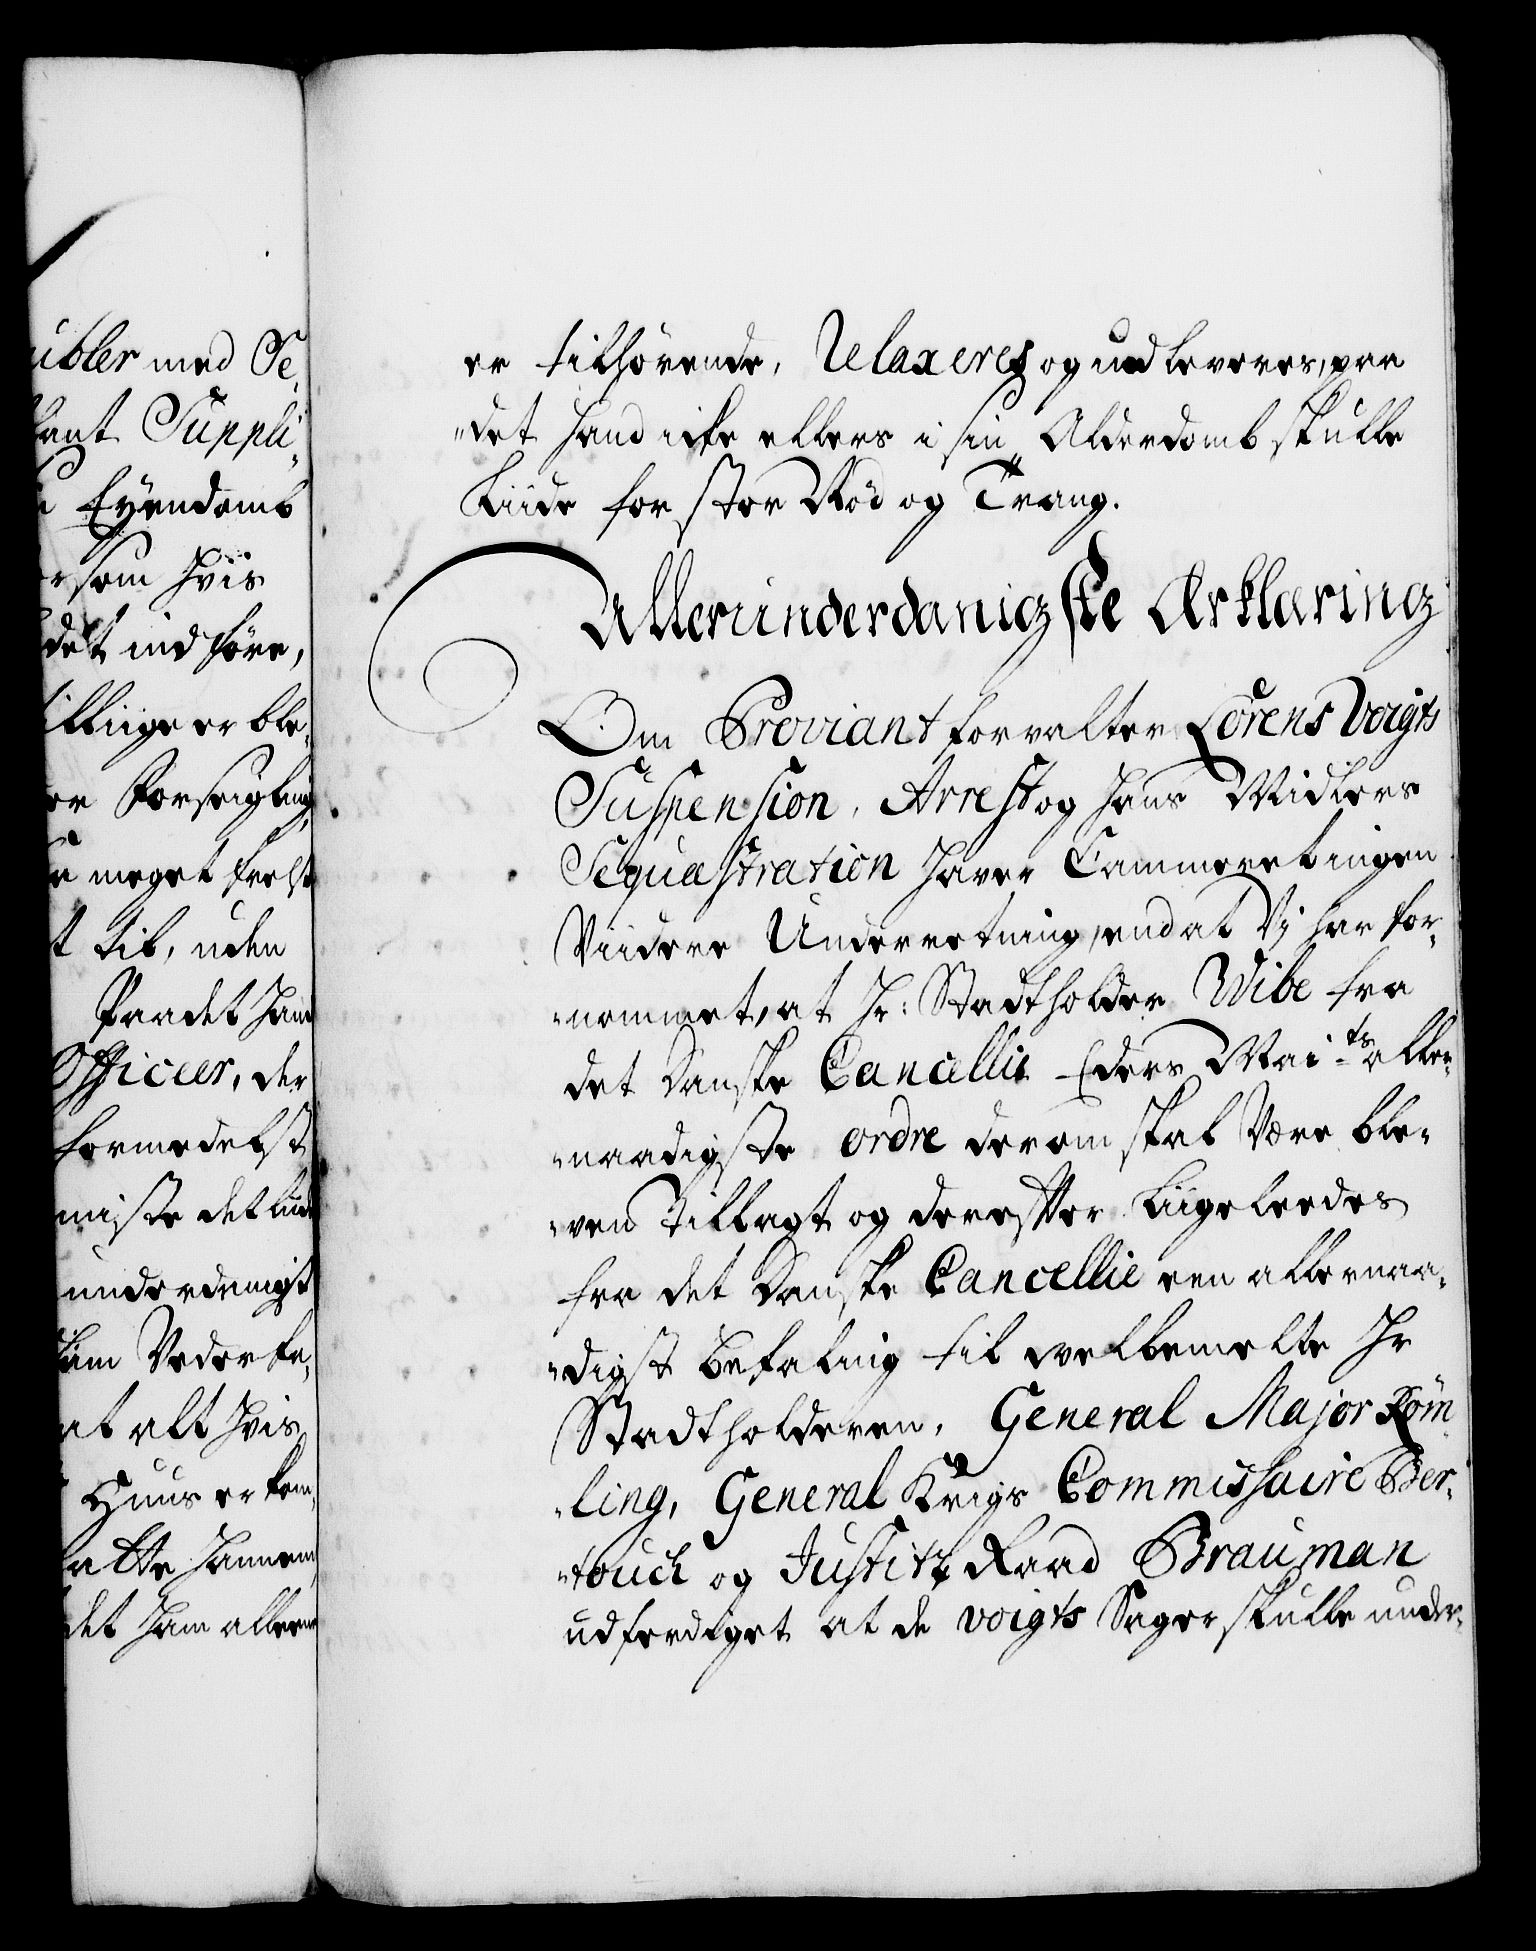 ubler med Se-
kant Suppli-
Eÿendomb
som hviis
det indføre,
tilliige er ble-
or Forseigling,
meget frelst
til, uden
Paadet hand
Officeer, der
formedelst
miste det lidet
underdanigst
Vederfa-
at alt hvis
Huus er kom-
atte hannem,
det ham allern
er tilhørende, Relaxeres og udleveres, paa
det hand icke ellers i sin Alderdomb skulle
Liide for stor Nød og Trang.
Allerunderdanigste Ærklæring
Om Proviantforvalter Lorens Voigts
Suspension, Arrest og hans Midlers
Sequæstration haver Cammeret ingen
Viidere Underretning, end at Vj har for-
nemmet, at Hr: Stadtholder Wibe fra
det Danske Cancellie Eders Mai:ts aller-
naadigste ordre derom skal Være ble-
ven Tillagt og derefter Liigeleedes
fra det Danske Cancellie een allernaa-
digst Befaling til welbemelte Hr
Stadtholderen, General Major Röm-
ling, General Krigs Commissaire Ber-
touch og Justitz Raad Brauman
udferdiget at de Voigts Sager skulle under-